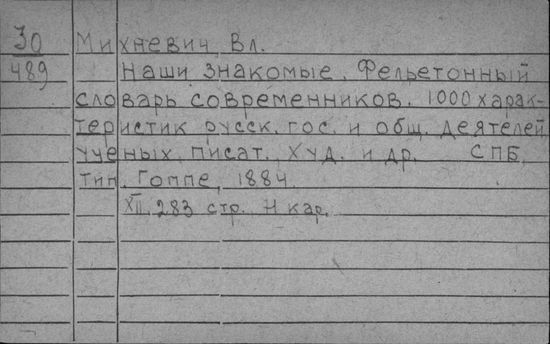 30 Михневич, Вл.
489 Наши знакомые. Фельетонный
словарь современников. 1000 харак-
теристик русск. гос. и общ. деятелей,
ученых, писат., худ. и др. СПБ,
тип. Гоппе, 1884.
XII, 283 стр. Н кар.